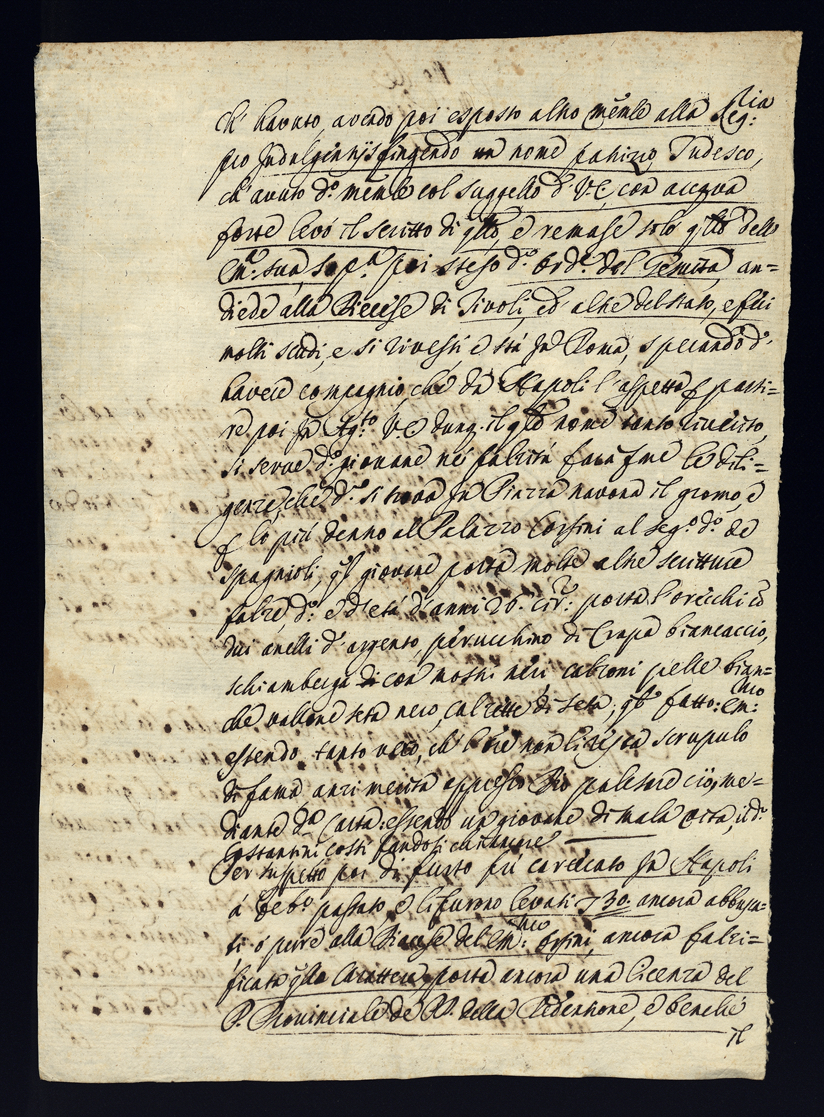 ch' havuto, avendo poi esposto altro mem.le alla Seg:ria
pro Indulgentijs fingendo un nome Patrizio Tudesco,
ch' avuto d.o mem.le col suggello d' V.E, con acqua
forte levò il scritto di q.llo, e remase solo q.llo dello
Em.a sua poi steso d.o Ord.e del Eremita, an=
diede alla Diecese di Tivoli, ed' altre del stato, e fece
molti scudi, e si rivestì e stà In Roma, sperando d'
havere compagnio, che da Napoli l' aspetta p partì=
re poi V.E dunq. il q.le nome tanto riverito,
si serve d.o giovane nei falzità farà fare le dili=
genze, che d.o si trova In Piazza navona il giorno, e
p lo più denno al Palazzo Corsini al de
Spagnioli, q.l giovane porta molte altre scritture
false, d.o è d'età d'anni 26. cir.a: porta l'orecchi c.o
dui anelli d' argento, peruchino di Crapa biancaccio,
schiamberga di con mostri neri calzoni pelle bian=
che vallone seta nero, calzette di seta; q.to fatto: Em:mo
essendo tanto vero, ch' non li resta scrupulo
di fama anzi merita appresso Dio palesare ciò, me=
diante d.a Carta: essendo un giovane di mala vita, il d.o
Costantini costì fandosi chiamare
Per suspetto poi di furto fù carcerato In Napoli
à Feb.o passato e li furono levati 730. ancora abbusa=
ti o pure alla Diecese del Em:mo Orsini, ancora falzi=
ficato q.llo Carattere, porta ancora una licenza del
P. Provinciale de PP. della Redentione, e benché
il